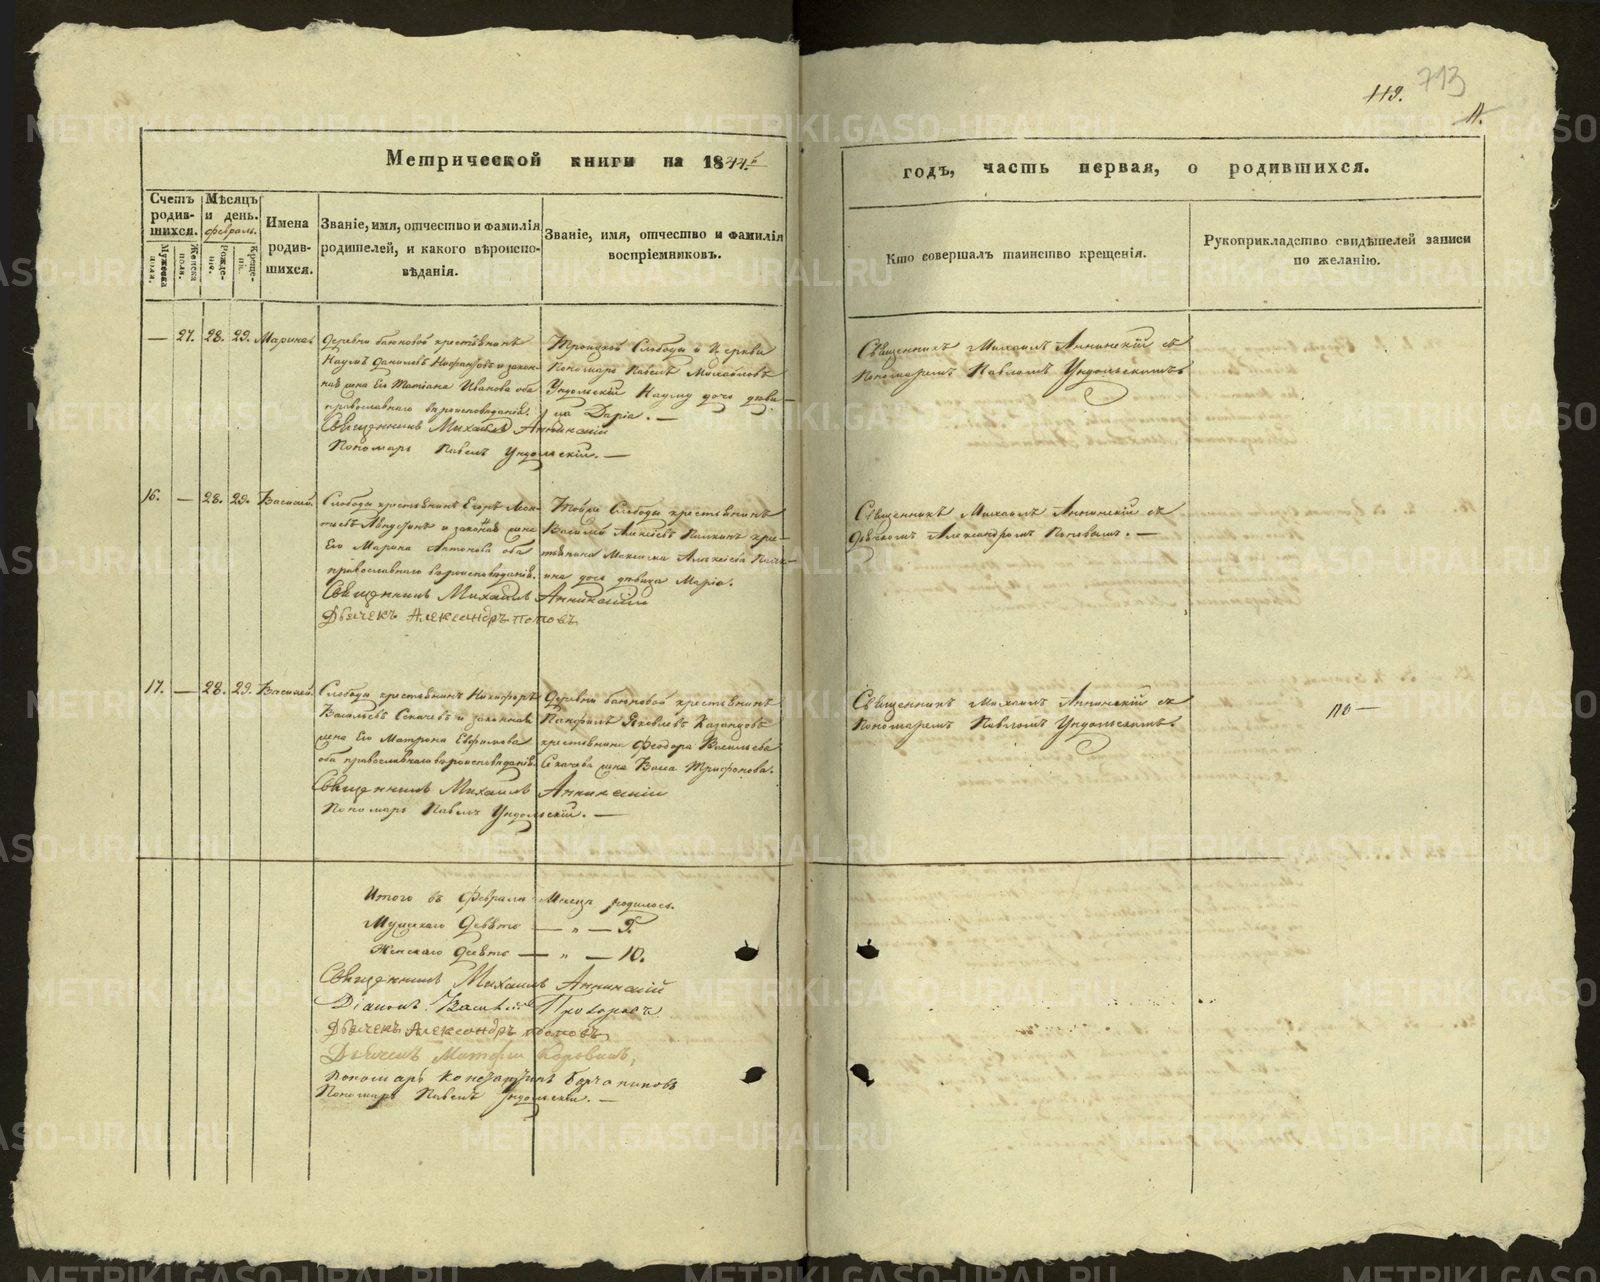 713
119.
Метрической книги на 1844й
годъ, часть первая, о родившихся.
Счетъ родив- шихся.
Мужеска полка.
Женска полк.
Мѣсяцъ и день.
февраль.
Рожде- ніе.
Креще- ніе.
Имена родив- шихся.
Званіе, имя, отчество и фамилія
родителей, и какого вѣроиспо-
вѣданія.
Званіе, имя, отчество и фамилія
воспріемниковъ.
Кто совершалъ таинство крещенія.
Рукоприкладство свидѣтелей записи
по желанію.
— 27. 28. 29. Марина
Деревни Баиновой крестьянинъ
Наумъ Даниловъ и закон-
ная жена Его Татіана Иванова оба
православнаго вѣроисповѣданія.
Священникъ Михаилъ Аннинскій
Пономарь Павелъ Ундольскій. —
Троицкой Слободы и Церкви
Пономарь Павелъ Михайловъ
Ундольскій Наума дочь дѣви-
ца Дарія. —
Священникъ Михаилъ Аннинскій съ
Пономаремъ Павломъ Ундольскимъ
16. — 28. 29. Василій.
Слободы крестьянинъ Егоръ Леон-
тьевъ и законная жена
Его Марина Антонова оба
православнаго вѣроисповѣданія.
Священникъ Михаилъ Аннинскій
Дьячекъ Александръ Поповъ
Тойже Слободы крестьянинъ
Василій Алексѣевъ кре-
стьянина Максима Алексѣева
дочь дѣвица Марія.
Священникъ Михаилъ Аннинскій съ
Дьячкомъ Александромъ Поповымъ. —
17. — 28. 29. Василій.
Слободы крестьянинъ Никифоръ
Васильевъ Секачевъ и законная
жена Его Матрона Евфимова
оба православнаго вѣроисповѣданія.
Священникъ Михаилъ Аннинскій
Пономарь Павелъ Ундольскій. —
Деревни Баиновой крестьянинъ
Панфилъ Яковлевъ Казанцовъ
крестьянина Феодора Васильева
Секачева жена Васса Трифонова.
Священникъ Михаилъ Аннинскій съ
Пономаремъ Павломъ Ундольскимъ.
Итого въ Февралѣ Месяцѣ родилось.
Мужескаго Девять — „ — 9.
Женскаго Десять — „ — 10.
Священникъ Михаилъ Аннинскій
Діаконъ Василій
Дьячекъ Александръ Поповъ
Дьячекъ Матфей Коровинъ,
Пономарь Констатинъ
Пономарь Павелъ Ундольскій. —